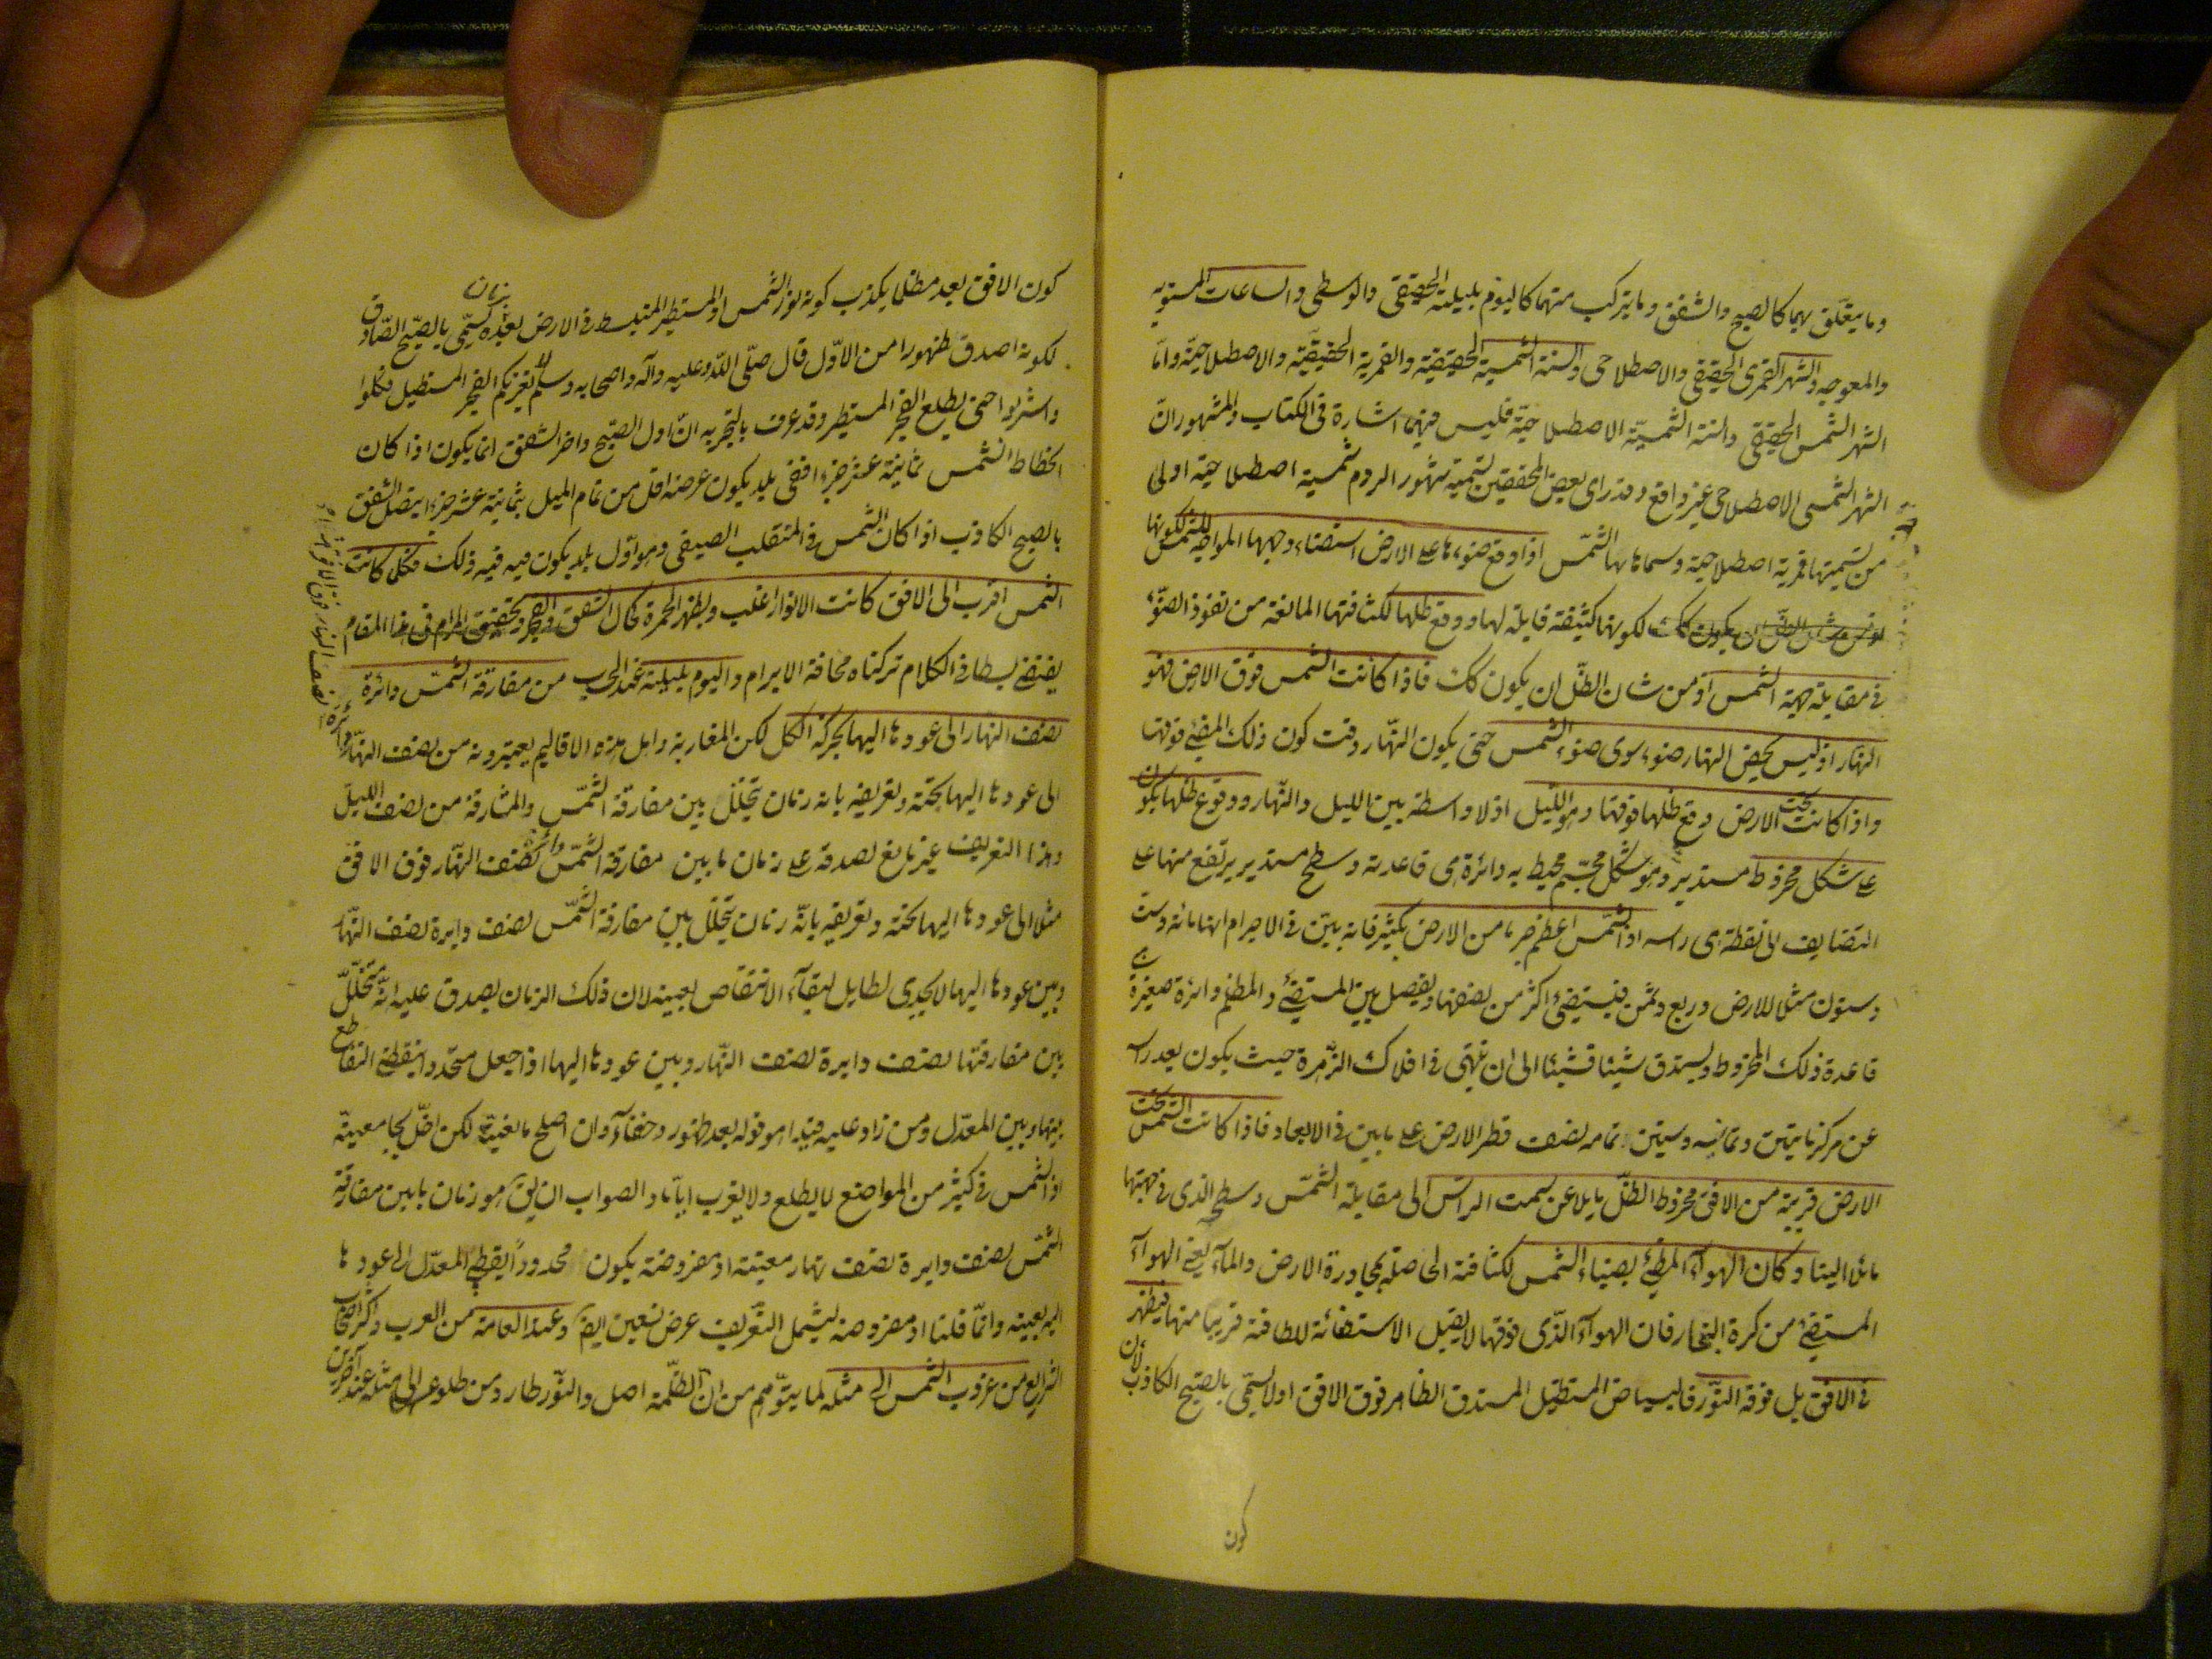 وما يتعلّق بهما كالصبح والشفق وما يتركب منهما كاليوم بليلته الحقيقى والوسطى والساعات المستويه
والمعوجه والشهر القمرى الحقيقى والاصطلاحى والسنة الشمسية الحقيقية والقمرية الحقيقيّة والاصطلاحيّة وامّا
الشهر الشمسى الحقيقى والسنة الشمسيّة الاصطلاحيّة فليس فيهما اشارة فى الكتاب والمشهور انّ
الشهر الشمسى الاصطلاحى غير واقع وقد راى بعض المحققين تسمية شهور الروم شمسية اصطلاحية اولى
من تسميتها قمرية اصطلاحية وسماها بها الشمس اذا وقع ضوءها على الارض استضاء وجهها المواجه للشمس لكونها
كثيفة قابلة لها ووقع ظلها لكثافتها المانعة من نفوذ الضوّء
فى مقابلة جهة الشمس اذ من شان الظّل ان يكون كك فاذا كانت الشمس فوق الارض فهو
النهار اذ ليس لمحض النهار ضوء سوى ضوء الشمس حتى يكون النهّار وقت كون ذلك المضئ فوقها
واذا كانت تحت الارض وقع ظلها فوقها وهو الليل اذ لا واسطة بين الليل والنهّار ووقوع ظلها يكون
على شكل مخروط مستدير وهو شكل مجسّم محيط به دائرة هى قاعدته وسطح مستدير يرتفع منها على
التضايف الى نقطة هى راسه اذ الشمس اعظم جرما من الارض بكثير فانه بيّن فى الاجرام انها مائة وست
وستون مثلا للارض وربع وثمن فيستضئ اكثر من نصفها ويفصل بين المستضئ والمظلم دائرة صغيرة هى
قاعدة ذلك المخروط ويستدق شيئا فشيئا الى ان ينتهى فى افلاك الزّهرة حيث يكون بعد راسه
عن مركزها مايتين وثمانيه وستين بما به نصف قطر الارض على ما بين فى الابعاد فاذا كانت الشمس تحت
الارض قريبة من الافق مخروط الظلّ مايلا عن سمت الراس الى مقابلة الشمّس وسطحه الذى فى جهتها
مائلا الينا وكان الهوآء المضئ بضياء الشمس لكثافته الحاصله بمجاورة الارض والمآء يعنى الهوآء
المستضئ من كرة البخار فان الهوآء الذّى فوقها لا يقبل الاستضائة للطافته قريبا منها فيظهر
فى الافق بل فوقه النوّر فالبياض المستطيل المستدق الظاهر فوق الافق اولا يسمّى بالصبح الكاذب لان
كون
كون الافق بعد مظلما يكذب كونه نور الشمس والمستطير المنبسط فى الارض بعده بزمان يسمّى بالصبّح الصّادق
لكونه اصدق ظهورا من الاوّل قال صلّى اللّه عليه وآله واصحابه وسلّم لا يغرنكم الفجر المستطيل فكلوا
واشربوا حتى يطلع الفجر المستطير وقد عرف بالتجربه انّ اول الصبّح واخر الشفق انما يكون اذا كان
انحطاط الشمس ثمانية عشر جزءا ففى بلد يكون عرضه اقل من تمام الميل بثمانية عشر جزءا يتصل الشفق
بالصبح الكاذب اذا كان الشمس فى المنقلب الصيفى وهو اوّل بلد يكون فيه ذلك فكلما كانت
الشمس اقرب الى الافق كانت الانوار اغلب ويظهر الحمرة كحال الشفق والفجر وتحقيق المرام فى هذا المقام
يقتضى بسطا فى الكلام تركناه مخافة الابرام واليوم بليلته عند الحساب من مفارقة الشمّس دائرة
نصف النهار الى عودها اليها بحركة الكل لكن المغاربة واهل هذه الاقاليم يعتبرونه من نصف النهّار
الى عودها اليها بحتة وتعريفه بانه زمان تخلّل بين مفارقة الشمّس والمشارقة من نصف الليل
وهذا التعريف غير مانع لصدقه على زمان ما بين مفارقة الشمّس دائرة نصف النهّار فوق الافق
مثلا الى عودها اليها تحته وتعريفه بانّه زمان يتخلّل بين مفارقة الشمّس لنصف دايرة نصف النهّار
وبين عودها اليها لا يجدى لطايل لبقآء الانتقاص بعينه لان ذلك الزمان يصدق عليه انّه متخللّ
بين مفارقتها لنصف دايرة نصف النهّار وبين عودها اليها اذا جعل محدودا بنقطتى التقاطع
بينها وبين المعدّل ومن زاد عليه قيدا هو قوله بعد ظهور وخفآء وان اصلح لكن اخلّ بجامعيته
اذ الشمس فى كثير من المواضع لا يطلع ولا يغرب اياما والصواب ان يقال هو زمان ما بين مفارقة
الشمّس لنصف دايرة نصف نهار معينة او مفروضة يكون محدوداً بقطبى المعدّل الى عودها
اليه بعينه وانّما قلنا او مفروضة ليشمل التعّريف عرض تسعين ايضا وعند العامة من العرب واكثر اصحاب
الشرايع من غروب الشمس الى مثله لما يتوّهم من ان الظلّمة اصل والنوّر طار ومن طلوعها الى مثله عند آخرين